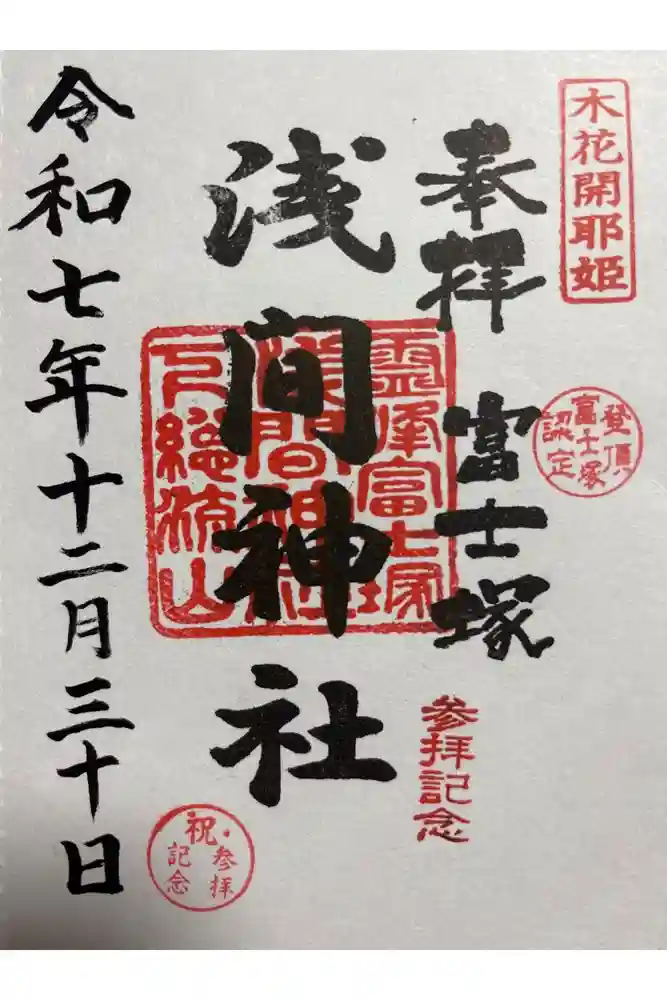 木花開耶姫
奉拝 富士塚
登頂
富士塚
認定
参拝記念
浅間神社
霊峰富士塚
浅間神社
下総流山
祝・参拝
記念
令和七年十二月三十日